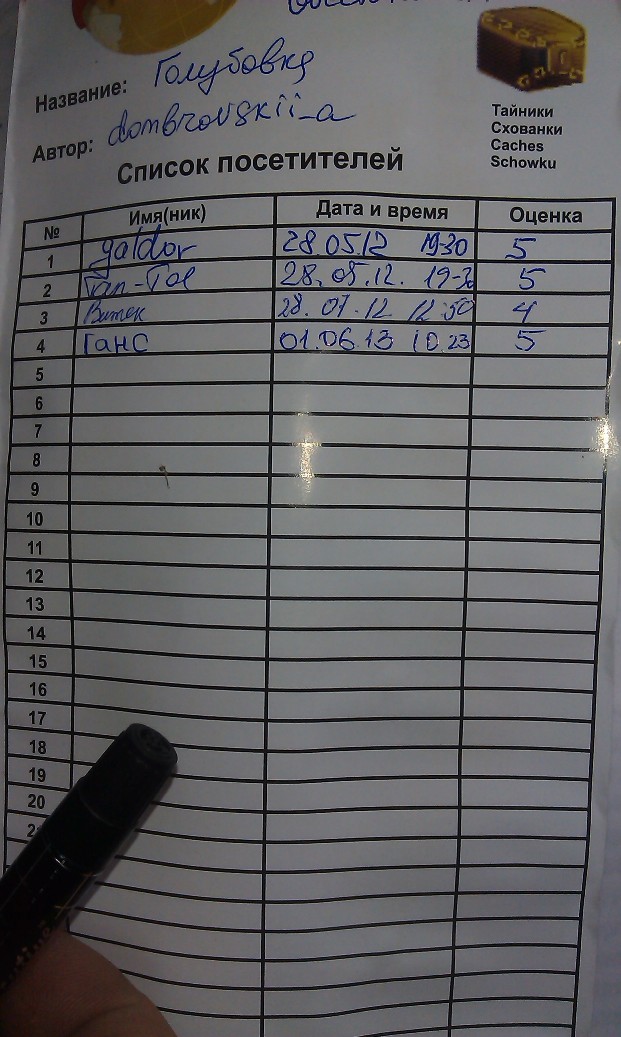 Название: Голубовка
Автор: dombrovskii_a
Тайники
Схованки
Caches
Schowku
Список посетителей
№ Имя(ник) Дата и время Оценка
1 galdor 28.05.12 19-30 5
2 28.05.12. 19-30 5
3 Витек 28.07.12 12:50 4
4 Ганс 01.06.13 10.23 5
5
6
7
8
9
10
11
12
13
14
15
16
17
18
19
20